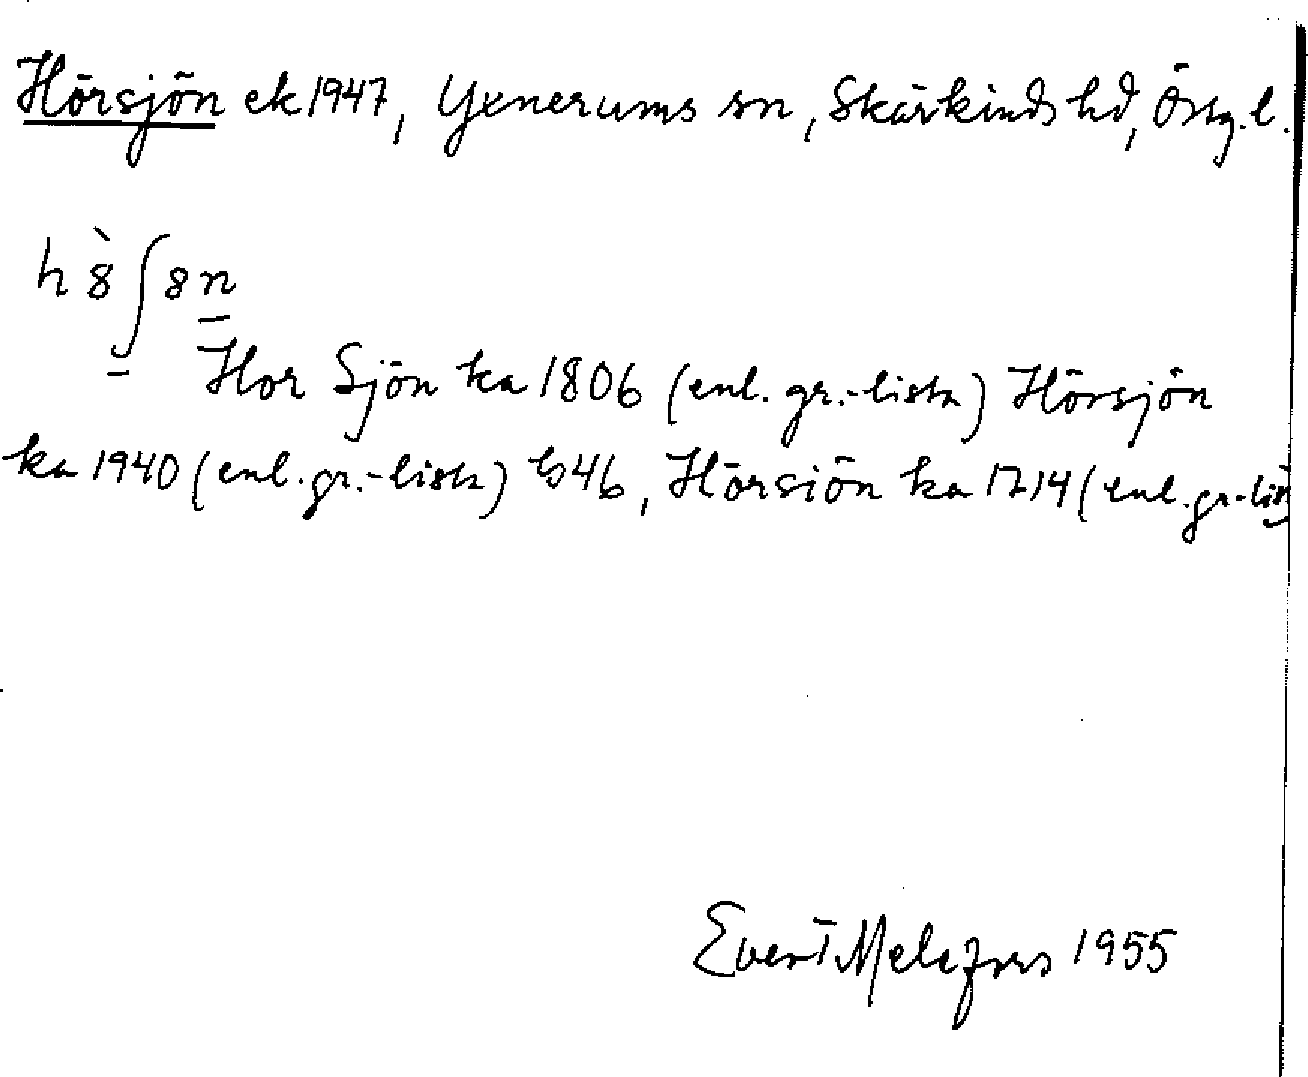 Hörsjön ek 1947, Yxnerums sn, Skärkinds hd, Östg. l.
h 8̀ ʃ 8 n
Hor Sjön ka 1806 (enl. gr.-lista) Hörsjön
ka 1940 (enl. gr.-lista) b46, Hörsiön ka 1714 (enl. gr-list
Evert Melefors 1955